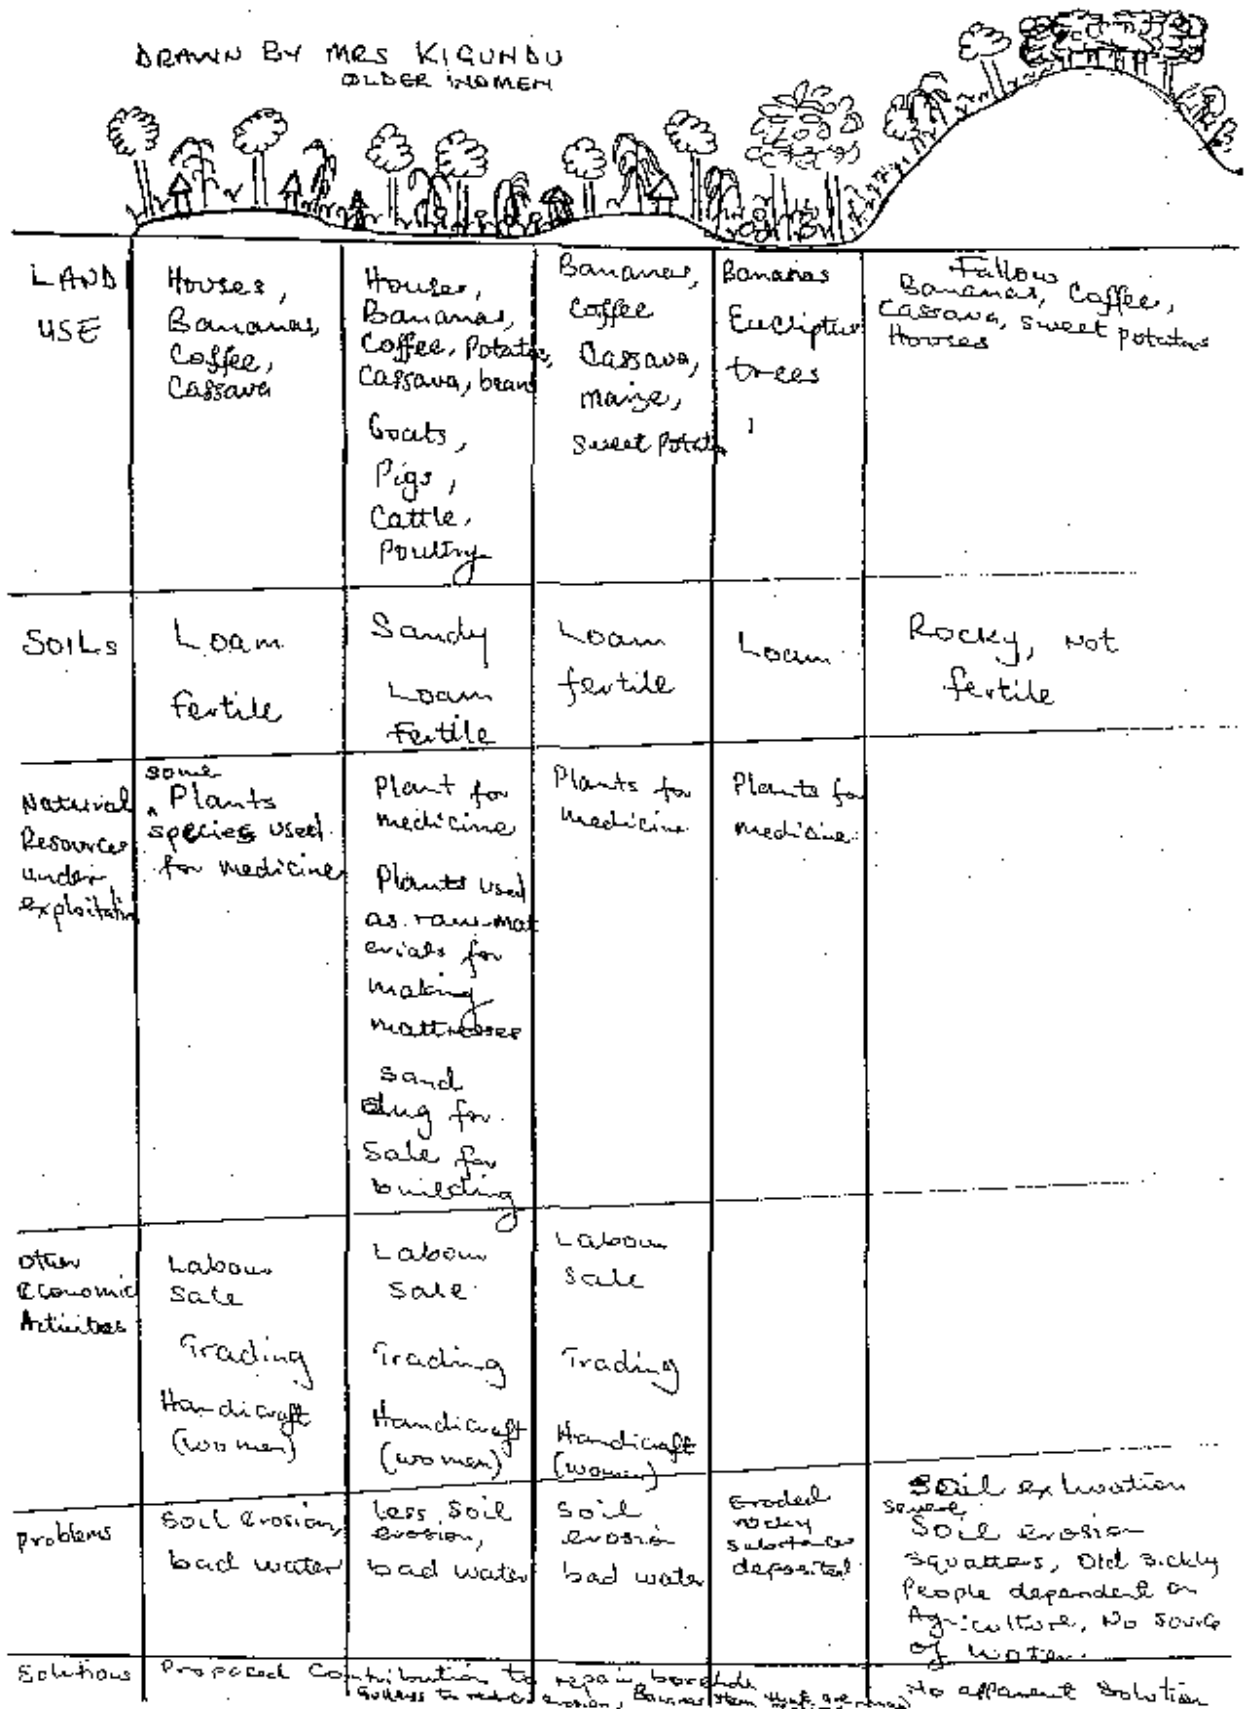 DRAWN BY MRS KIGUNDU
OLDER WOMEN
LAND
USE
Houses,
Bananas,
Coffee,
Cassava
Houses,
Bananas,
Coffee, Potatoes,
Cassava, beans
Goats,
Pigs,
Cattle,
Poultry
Bananas,
Coffee
Cassava,
maize,
Sweet Potatoes
Bananas
Eucliptus
trees
Fallow
Bananas, Coffee,
Cassava, sweet potatoes
Houses
SOILS
Loam
Fertile
Sandy
Loam
Fertile
Loam
fertile
Loam
Rocky, Not
fertile
Natural
Resources
under
exploitation
some
Plants
species used
for medicine
Plant for
medicine
Plants used
as raw mat
erials for
making
mattresses
Sand
dug for
Sale for
building
Plants for
medicine
Plants for
medicine
Other
Economic
Activities
Labour
Sale
Trading
Handicraft
(women)
Labour
Sale
Trading
Handicraft
(women)
Labour
Sale
Trading
Handicraft
(women)
Problems
Soil erosion,
bad water
Less Soil
erosion,
bad water
Soil
erosion
bad water
Eroded
rocky
substances
deposited
Soil exhuation
severe
Soil erosion
Squatters, Old sickly
People dependent on
Agriculture, No source
of water.
Solutions
Proposed Contribution to repair borehole
to reduce erosion, Banana stem
No apparent solution